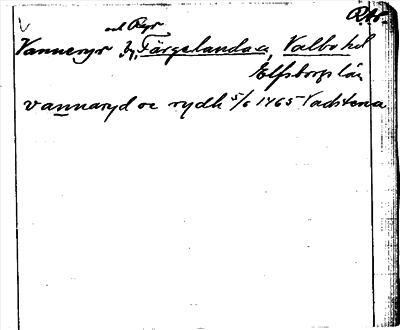 V
RAp.
och Ryr
Vanneryr By, Färgelanda sn, Valbo hd
Elfsborgs län
vannaryd oc rydh 5/6 1465 Vadstena